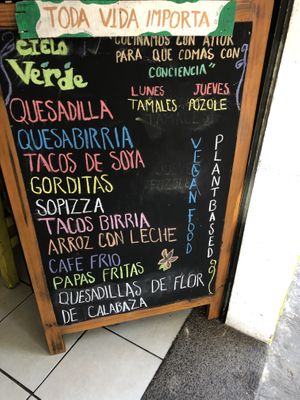 TODA VIDA IMPORTA
CIELO
Verde
COCINAMOS CON AMOR
PARA QUE COMAS CON
CONCIENCIA
LUNES JUEVES
TAMALES POZOLE
QUESADILLA
QUESABIRRIA
TACOS DE SOYA
GORDITAS
SOPIZZA
TACOS BIRRIA
ARROZ CON LECHE
CAFE FRIO
PAPAS FRITAS
QUESADILLAS DE FLOR
DE CALABAZA
VEGAN FOOD
PLANT BASED